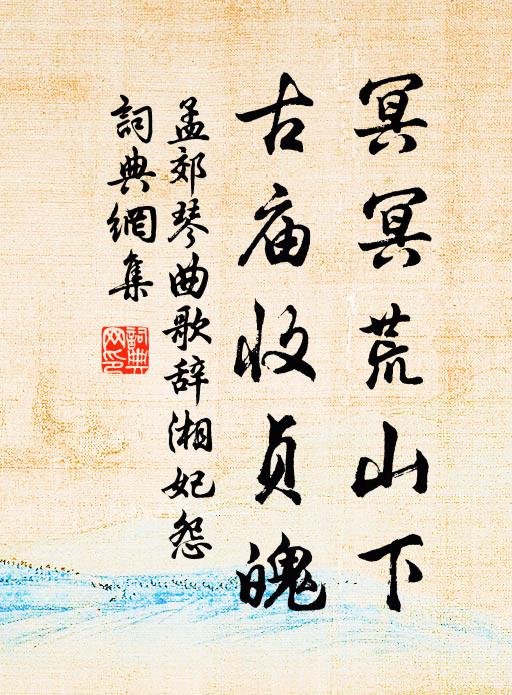 冥冥荒山下
古庙收贞魄
孟郊琴曲歌辞湘妃怨
詞典網集
詞典網印